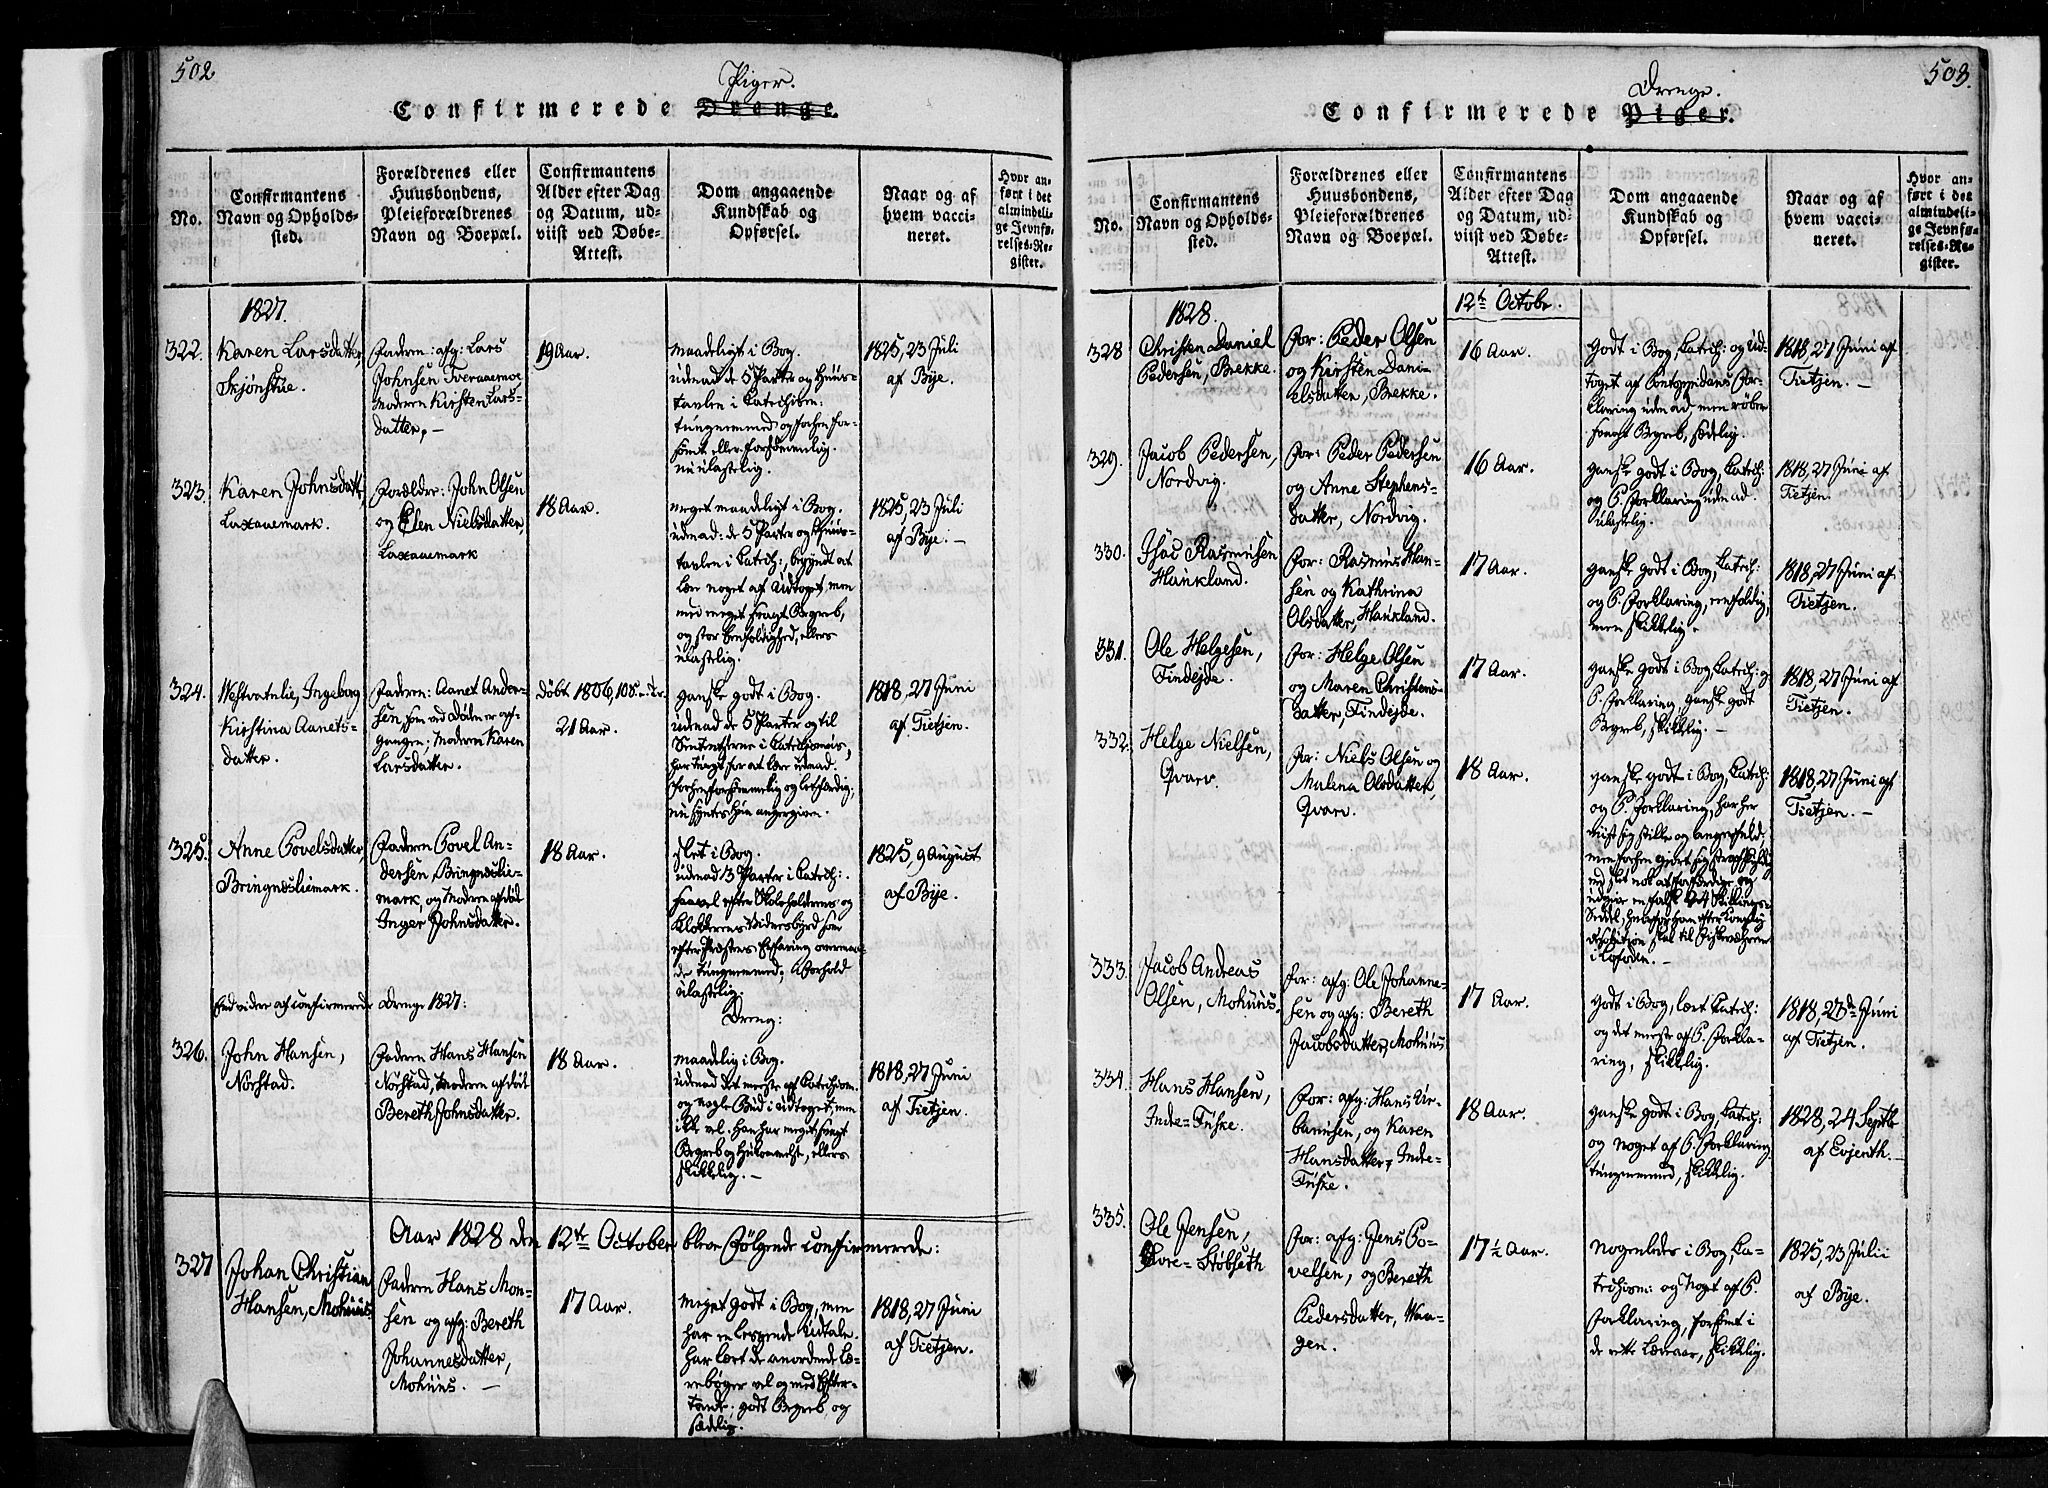 502
Piger.
Confirmerede Drenge.
No.
Confirmantens
Navn og Opholds-
sted.
Forældrenes eller
Huusbondens,
Pleieforældrenes
Navn og Boepæl.
Confirmantens
Alder efter Dag
og Datum, ud-
viist ved Døbe-
Attest.
Dom angaaende
Kundskab og
Opførsel.
Naar og af
hvem vacci-
neret.
Hvor an-
ført i det
almindeli-
ge Jevnfø-
relses-Re-
gister.
1827.
322.
Karen Larsdatter,
Skjønstue.
Faderen: afg: Lars
Johnsen Tveraaemoe,
Moderen Kirsten Lars-
datter, —
19 Aar.
Maadeligt i Bog.
udenad de 5 Parter og Huus-
tavlen i Catechism:
tungnemmed og forhen for-
sømt, eller forsømmelig.
nu ulastelig.
1825, 23 Juli
af Bye.
323.
Karen Johnsdatt,
Laxaaemark.
Forældre: John Olsen
og Elen Nielsdatter,
Laxaaemark
18 Aar.
meget maadeligt i Bog.
udenad: de 5 Parter og Huus-
tavlen i Catech:, begyndt at
lære noget af Udtoget, men
med meget svagt Begreb,
og stor Eenfoldighed, ellers
ulastelig.
1825, 23 Juli
af Bye. —
324.
Westvatnlie, Ingeborg
Kirstina Aanets-
datter.
Faderen: Aanet Ander-
sen, som ved Døden er af-
gangen; Moderen Karen
Larsdatter.
døbt 1806,
21 Aar.
ganske godt i Bog.
udenad de 5 Parter og til
Sententserne i Catechismus,
har tungt for at lære udenad.
forhen forsømmelig og letfærdig,
nu synes hun angergiven.
1818, 27 Juni
af Tietjen.
325.
Anne Povelsdatter,
Bringnesliemark.
Faderen Povel An-
dersen, Bringneslie-
mark, og Moderen afdød
Inger Johnsdatter.
18 Aar.
slet i Bog.
udenad 3 Parter i Catech:.
saavel efter Skoleholderens og
Klokkerens Vidnesbyrd som
efter Præstens Erfaring overmaa-
de tungnemmed; i Forhold
ulastelig.
1825, 9 August
af Bye.
End videre af confirmerede Drenge 1827:
Dreng:
326.
John Hansen,
Norstad.
Faderen Hans Hansen
Norstad, Moderen afdød
Bereth Johnsdatter.
18 Aar.
maadelig i Bog.
udenad det meste af Catechism.
og nogle Bud i Udtoget, men
ikke vel. Han har meget svagt
Begreb og Hukommelse, ellers
skikkelig. —
1818, 27 Juni
af Tietjen.
Aar 1828 den 12te October bleve følgende confirmerede:
327
Johan Christian
Hansen, Mohuus.
Faderen Hans Mon-
sen og afg: Bereth
Johannesdatter,
Mohuus. —
17 Aar.
Meget godt i Bog, men
har en lespende Udtale.
har lært de anordnede Læ-
rebøger vel og med Efter-
tanke; godt Begreb, og
sædelig.
1818, 27 Juni
af Tietjen.
503.
Drenge.
Confirmerede Piger.
No.
Confirmantens
Navn og Opholds-
sted.
Forældrenes eller
Huusbondens,
Pleieforældrenes
Navn og Boepæl.
Confirmantens
Alder efter Dag
og Datum, ud-
viist ved Døbe-
Attest.
Dom angaaende
Kundskab og
Opførsel.
Naar og af
hvem vacci-
neret.
Hvor an-
ført i det
almindeli-
ge Jevnfø-
relses-Re-
gister.
1828.
12te Octobr.
328
Christen Daniel
Pedersen, Brekke.
For: Peder Olsen
og Kirsten Dani-
elsdatter, Brekke.
16 Aar.
godt i Bog, Catech: og Ud-
toget af Pontoppidans For-
klaring udenad, men røber
svagt Begreb, sædelig.
1818, 27 Juni af
Tietjen. —
329.
Jacob Pedersen,
Nordvig.
For: Peder Pedersen
og Anne Stephens-
datter, Nordvig.
16 Aar.
ganske godt i Bog, Catech:
og P. Forklaring udenad.
ulastelig.
1818, 27 Juni af
Tietjen.
330.
Isac Rasmusen
Haukland.
For: Rasmus Han-
sen og Kathrina
Olsdatter, Haukland.
17 Aar.
ganske godt i Bog, Catech:
og P. Forklaring, eenfoldig,
men skikkelig.
1818, 27 Juni af
Tietjen.
331.
Ole Helgesen,
Findejde.
For: Helge Olsen
og Maren Christens-
datter, Findejde.
17 Aar.
ganske godt i Bog, Catech: og
P. Forklaring, ganske godt
Begreb, skikkelig. —
1818, 27 Juni af
Tietjen.
332.
Helge Nielsen,
Qvarv.
For: Niels Olsen og
Malena Olsdatter,
Qvarv.
18 Aar.
ganske godt i Bog, Catech:
og P. Forklaring, har her
viist sig stille og angerfuld,
men forhen gjort sig strafskyldig
ved slet nok at forfærdige og
udgive en falsk 24 Skillings-
Seddel, hvorfor han efter Kongelig
Resolution skal til Fiskeværerne
i Lofoden. —
1818, 27 Juni af
Tietjen. —
333.
Jacob Andreas
Olsen, Mohuus.
For: afg: Ole Johanne-
sen og afg: Bereth
Jacobsdatter, Mohuus
17 Aar.
godt i Bog, lært Catech:
og det meste af P. Forkla-
ring, skikkelig.
1818, 27de Juni
af Tietjen.
334.
Hans Hansen,
Indre-Tuske.
For: afg: Hans Ur-
banusen, og Karen
Hansdatter, Indre-
Tuske.
18 Aar.
ganske godt i Bog, Catech:
og noget af P. Forklaring,
tungnemmed, skikkelig.
1828, 24 Septb
af Evjenth. —
335.
Ole Jensen,
Øvre-Støbseth
For: afg: Jens Po-
velsen, og Bereth
Pedersdatter, Waa-
gen.
17½ Aar.
Nogenledes i Bog, Ca-
techism: og noget af P.
Forklaring, forsømt i
de rette Læreaar, skikkelig.
1825, 23 Julii
af Bye.